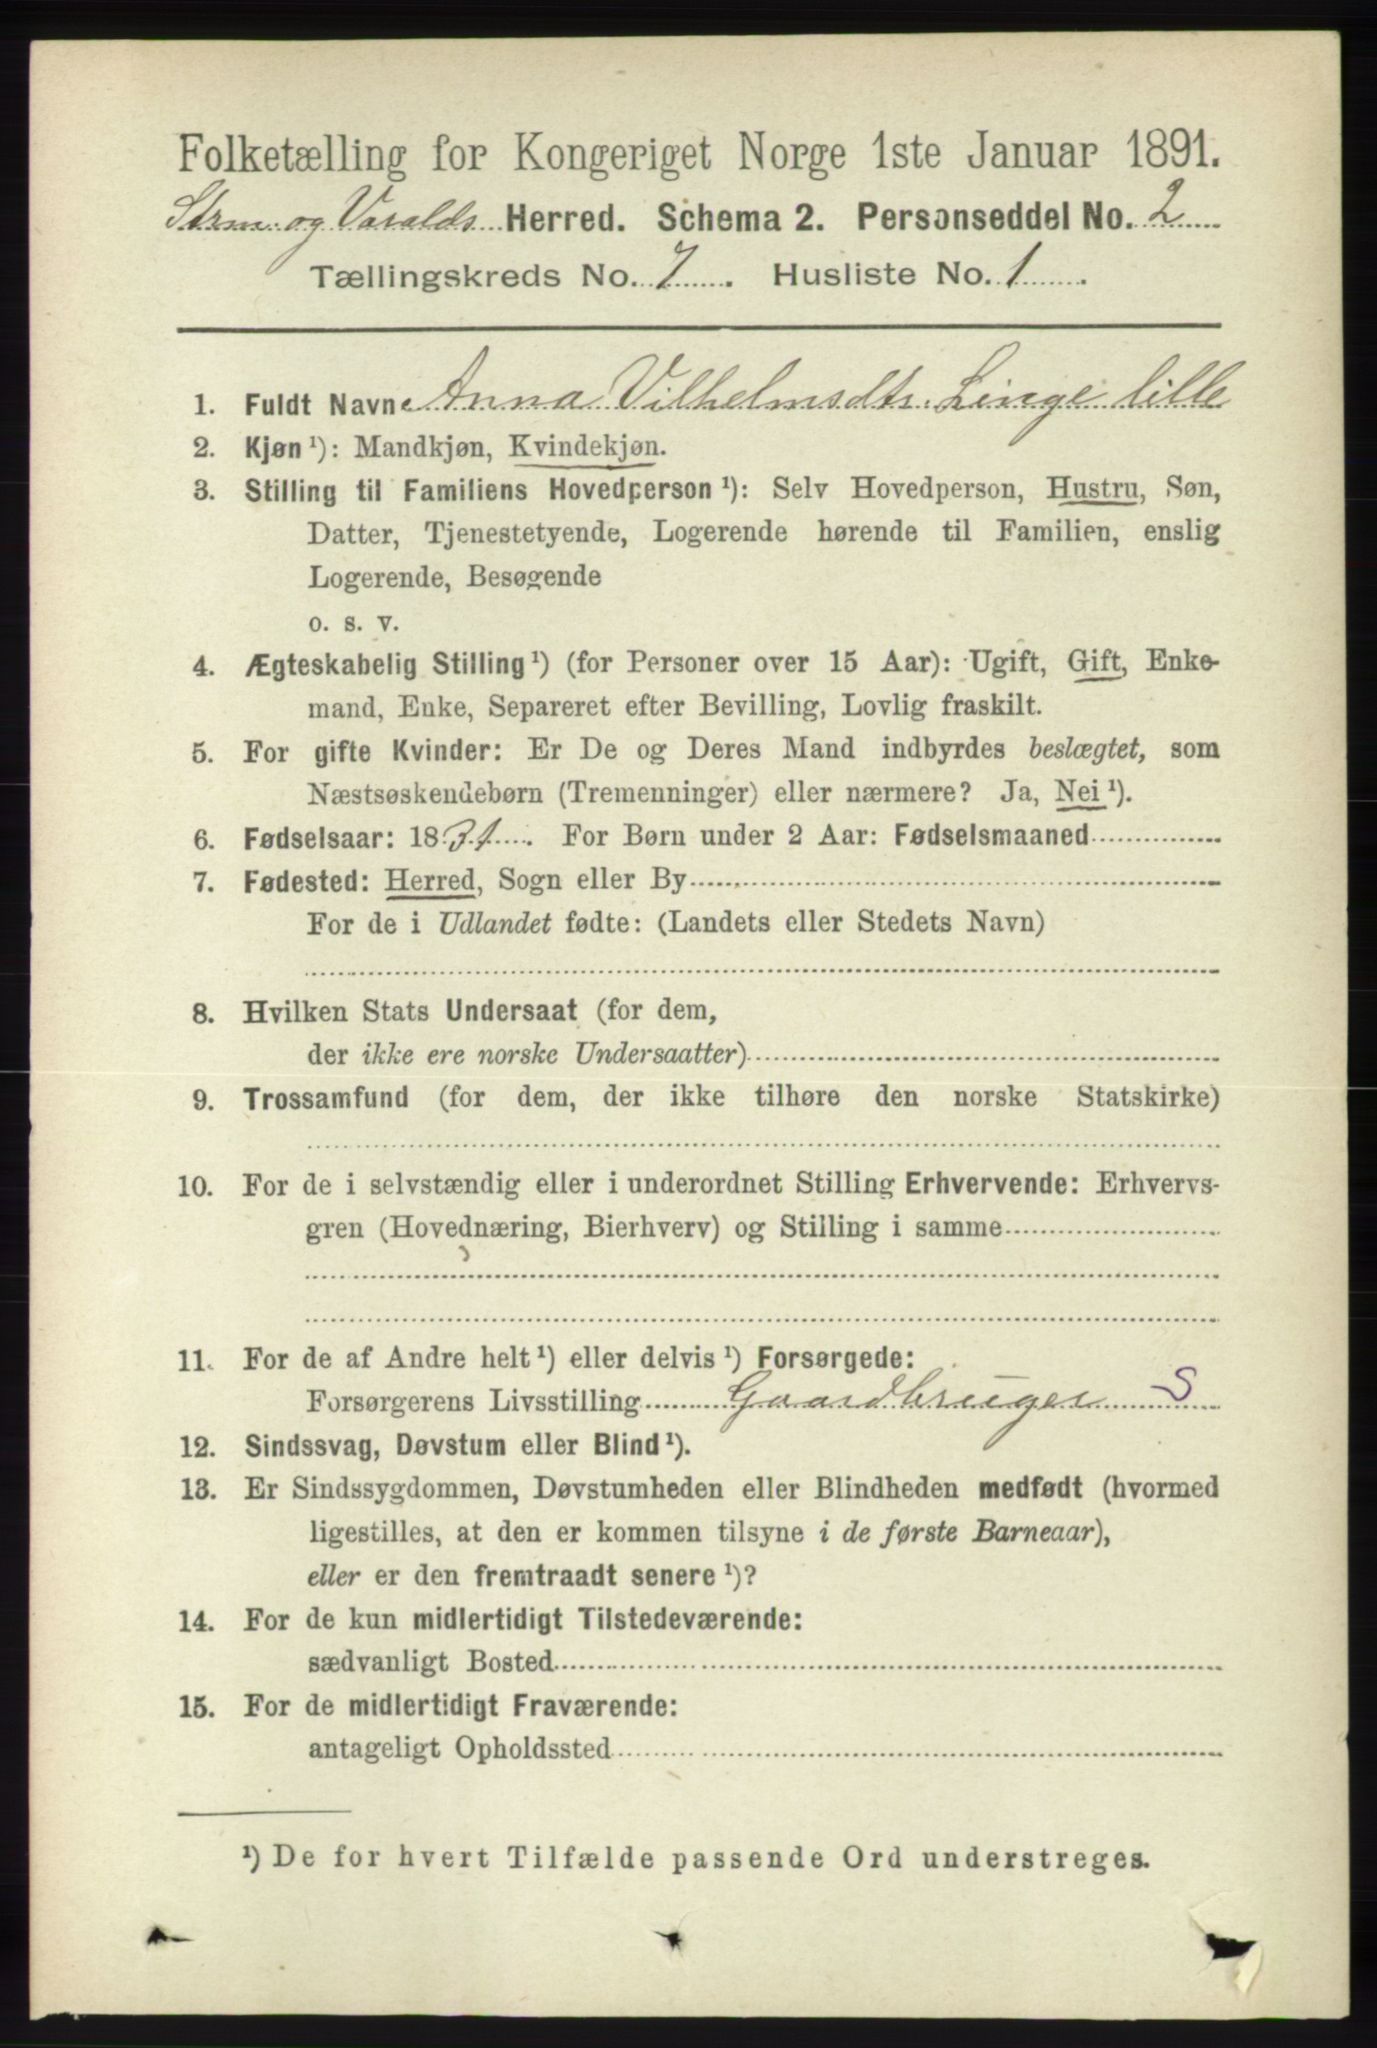 Folketælling for Kongeriget Norge 1ste Januar 1891.
Strm. og Varalds Herred. Schema 2. Personseddel No. 2
Tællingskreds No. 7. Husliste No. 1.
1. Fuldt Navn Anna Vilhelmsdtr. Linge lille
2. Kjøn¹): Mandkjøn, Kvindekjøn.
3. Stilling til Familiens Hovedperson¹): Selv Hovedperson, Hustru, Søn,
Datter, Tjenestetyende, Logerende hørende til Familien, enslig
Logerende, Besøgende
o. s. v.
4. Ægteskabelig Stilling¹) (for Personer over 15 Aar): Ugift, Gift, Enke-
mand, Enke, Separeret efter Bevilling, Lovlig fraskilt.
5. For gifte Kvinder: Er De og Deres Mand indbyrdes beslægtet, som
Næstsøskendebørn (Tremenninger) eller nærmere? Ja, Nei¹).
6. Fødselsaar: 1831. For Børn under 2 Aar: Fødselsmaaned
7. Fødested: Herred, Sogn eller By
For de i Udlandet fødte: (Landets eller Stedets Navn)
8. Hvilken Stats Undersaat (for dem,
der ikke ere norske Undersaatter)
9. Trossamfund (for dem, der ikke tilhøre den norske Statskirke)
10. For de i selvstændig eller i underordnet Stilling Erhvervende: Erhvervs-
gren (Hovednæring, Bierhverv) og Stilling i samme
11. For de af Andre helt¹) eller delvis¹) Forsørgede:
Forsørgerens Livsstilling Gaardbruger S
12. Sindssvag, Døvstum eller Blind¹).
13. Er Sindssygdommen, Døvstumheden eller Blindheden medfødt (hvormed
ligestilles, at den er kommen tilsyne i de første Barneaar),
eller er den fremtraadt senere¹)?
14. For de kun midlertidigt Tilstedeværende:
sædvanligt Bosted
15. For de midlertidigt Fraværende:
antageligt Opholdssted
¹) De for hvert Tilfælde passende Ord understreges.